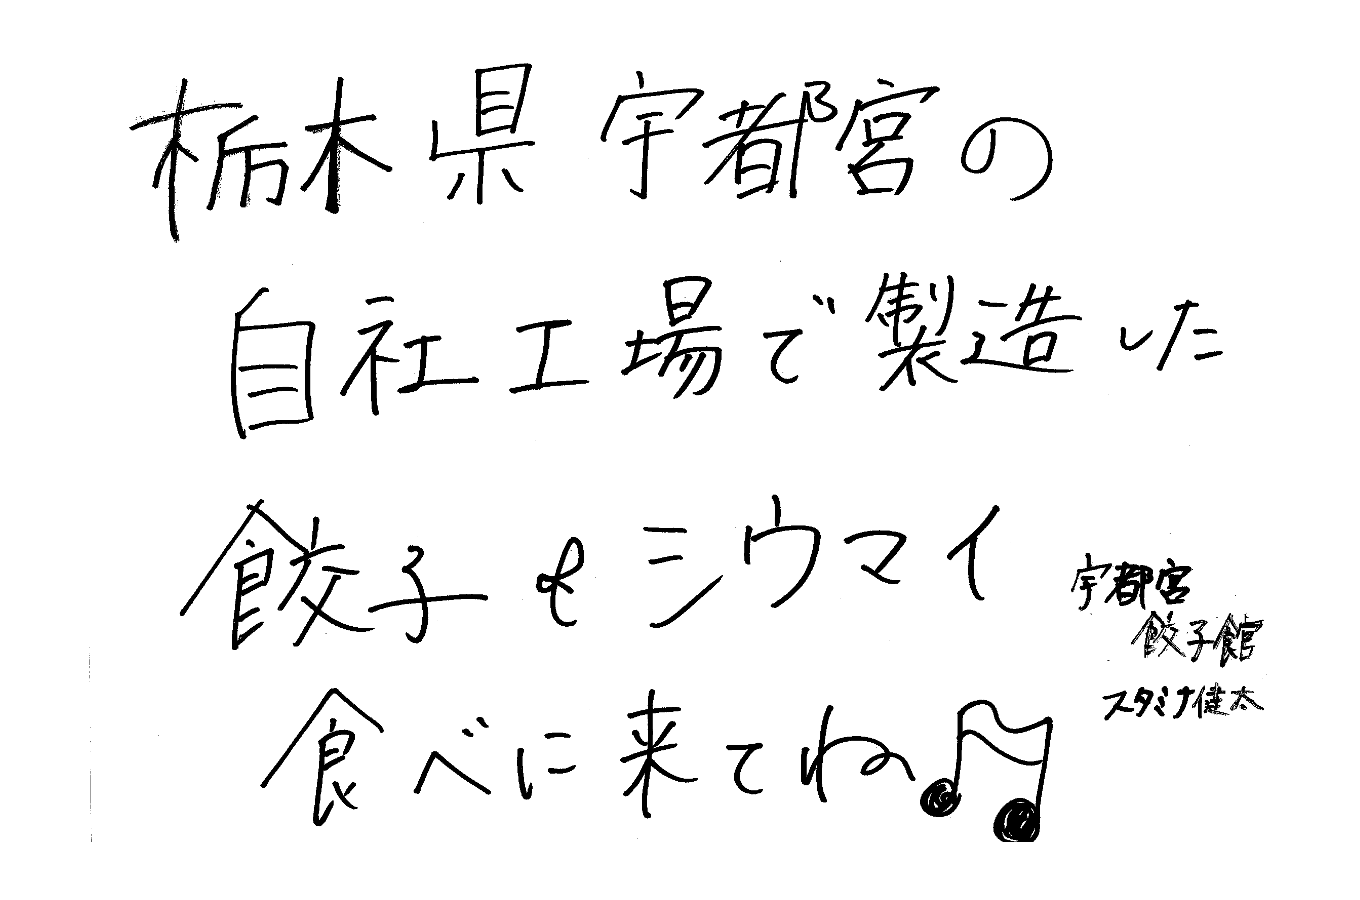 栃木県宇都宮の
自社工場で製造した
餃子&シウマイ
食べに来てね♫
宇都宮
餃子館
スタミナ健太